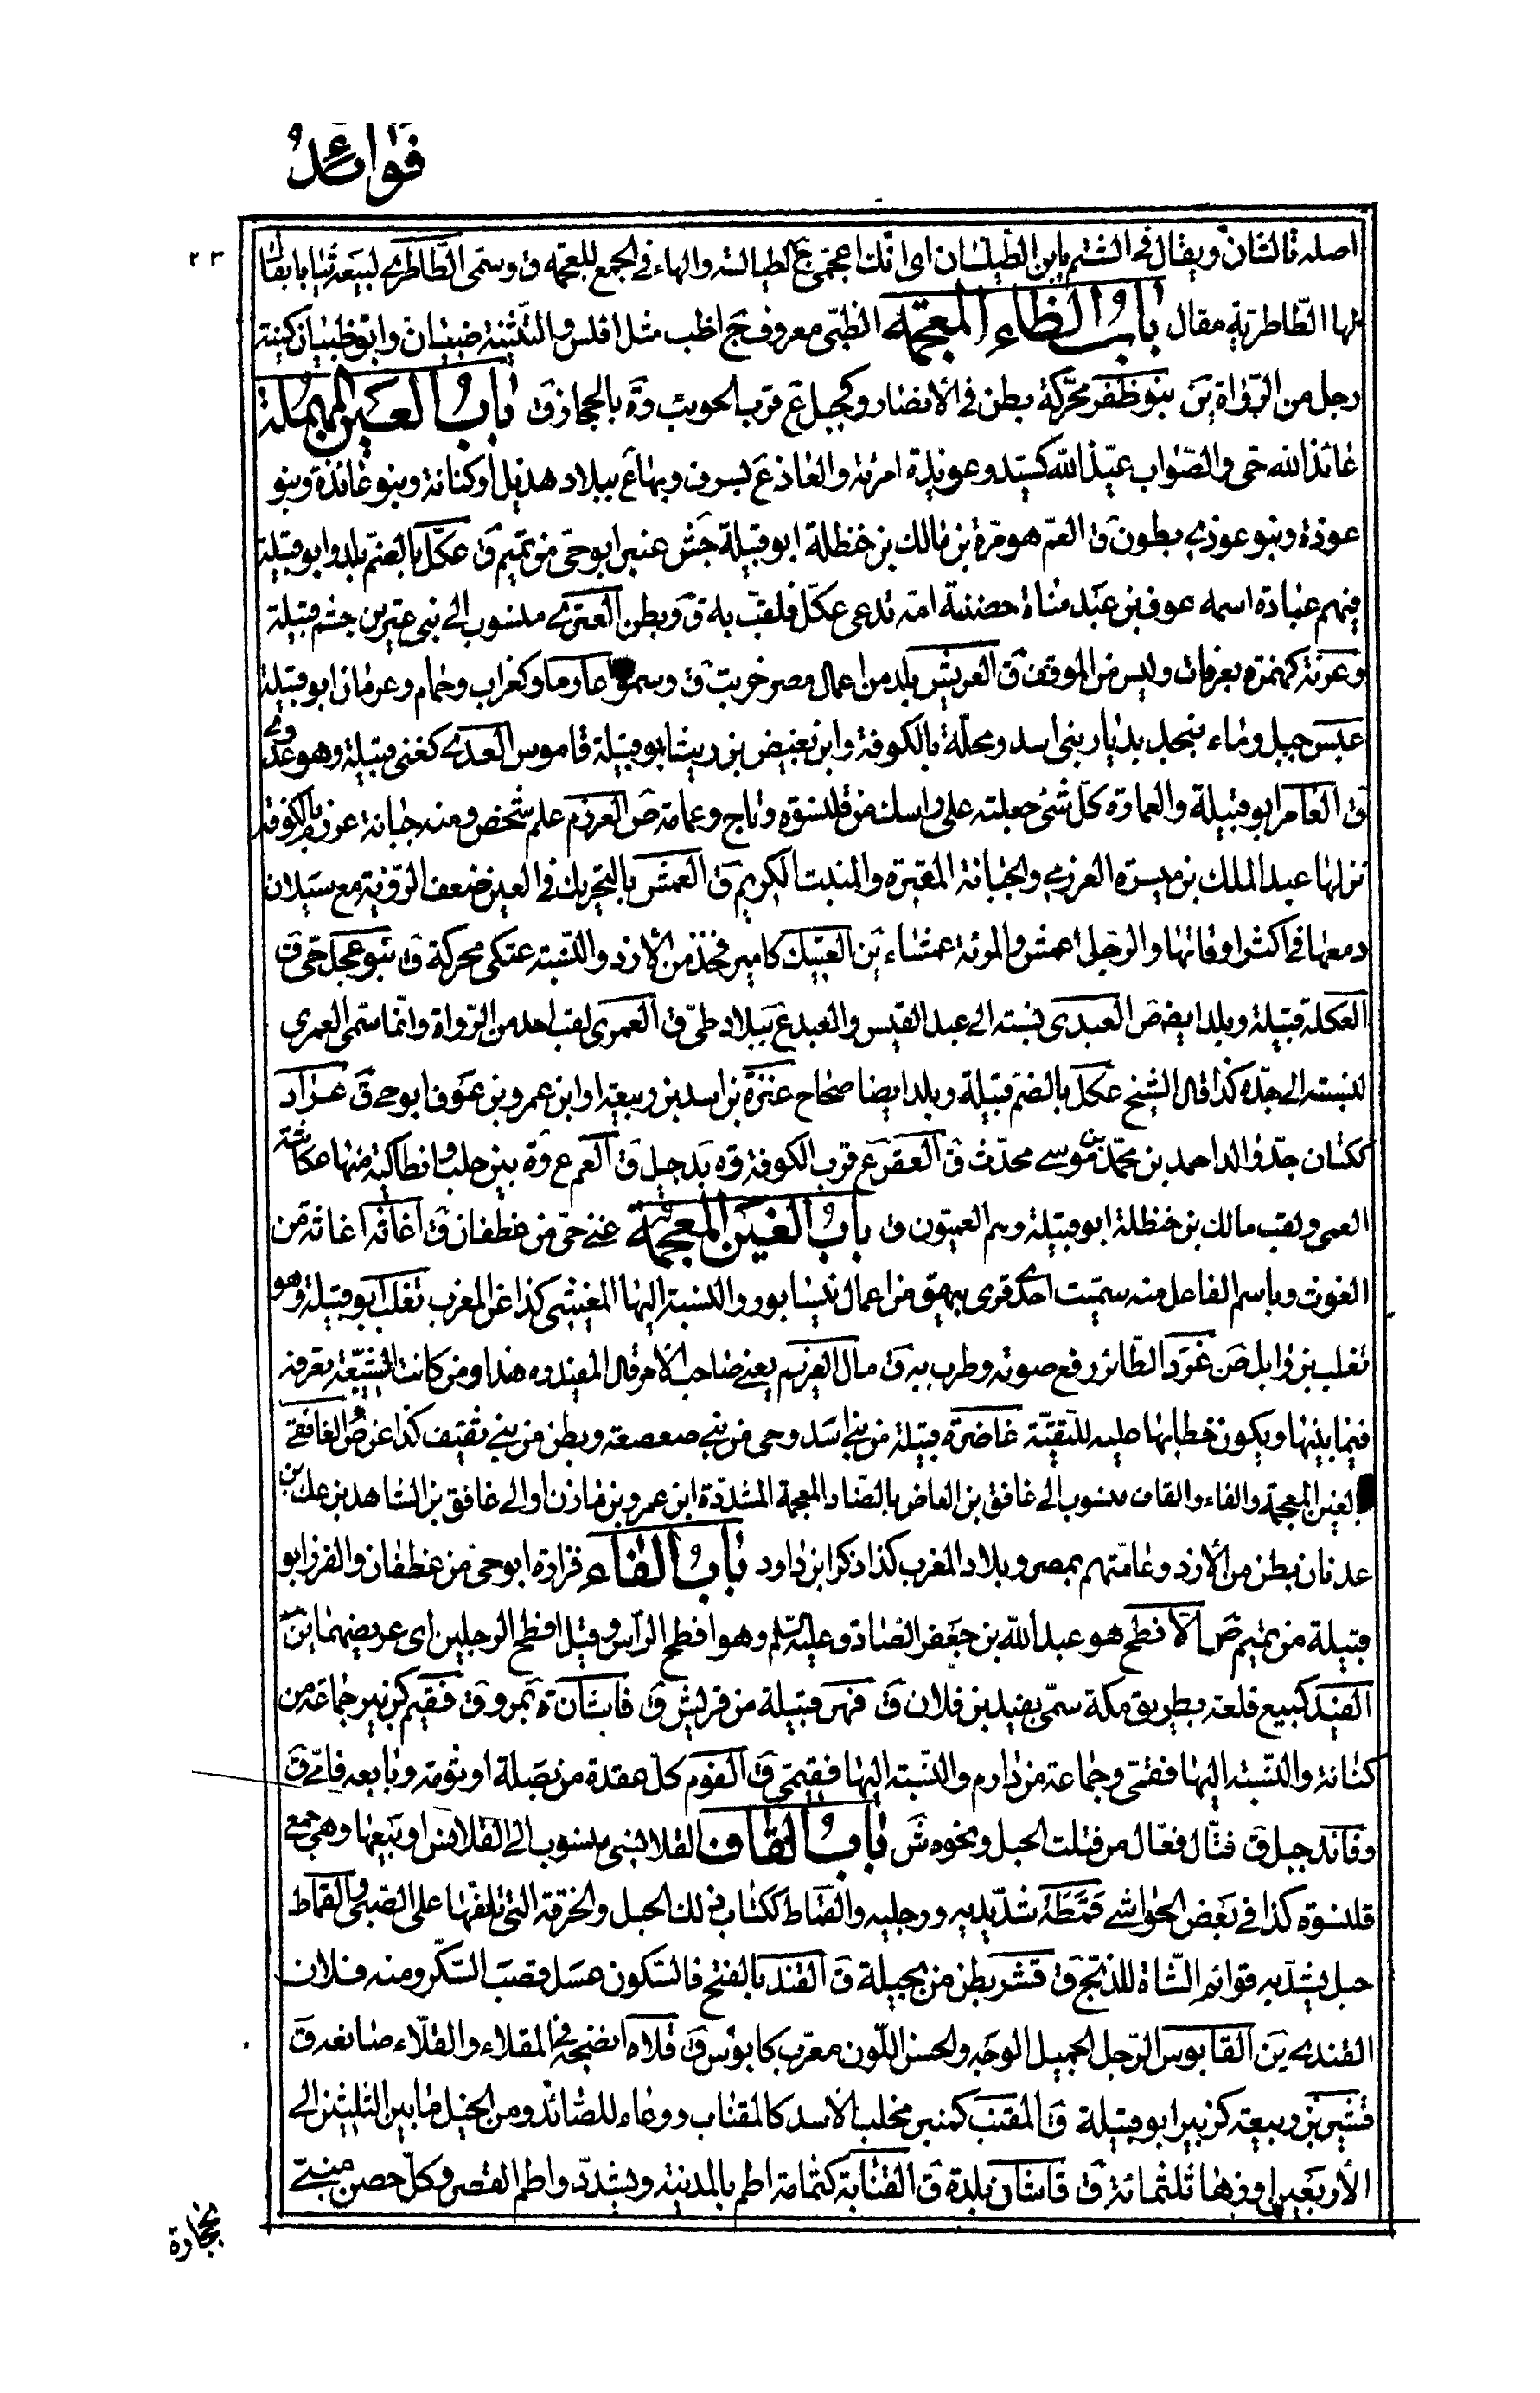 فوائد
٢٣
اصله تالشان ويقال في الشتم يابن الطيلسان اى انّك اعجمى ج الطيالسة والهاء في الجمع للعجمة ق وسمى الطّاطرى لبيعه ثيابا يقال
لها الطّاطرية مقال باب الظاء المعجمة الظبى معروف ج اظب مثل افلس والتثنية ظبيان وابو ظبيان كنية
رجل من الرّواة ين بنو ظفر محرّكة بطن في الأنصار وكجبل ع قرب الحويب وة بالحجاز ق باب العين المهملة
عائذ الله حى والصّواب عيّذ الله كسيّد وعويذة امرئة والعاذ ع بسرف وبهاء ع ببلاد هذيل أو كنانة وبنو عائذة وبنو
عوذة وبنو عوذى بطون ق العمّ هو مرّة بن مالك بن حنظلة ابو قبيلة جش عنبر ابو حىّ من تميم ق عكل بالضمّ بلد وابو قبيلة
فيهم عبادة اسمه عوف بن عبد مناة حضنته امة تدعى عكل فلقّب به ق وبطن العترى منسوب الى بنى عتر بن جشم قبيلة
وعرنة كهمزة بعرفات وليس من الموقف ق العريش بلد من اعمال مصر خربت ق وسمّوا عارما وكغراب وحمام وعرمان ابو قبيلة
عبس جبل وماء بنجد بديار بنى اسد ومحلّة بالكوفة وابن بغيض بن ريث ابو قبيلة قاموس العدى كغنى قبيلة وهو عدوى
ق العامر ابو قبيلة والعمارة كلّ شئ جعلته على راسك من قلنسوة وتاج وعمامة ص العرزم علم شخص ومنه جبانة عرزم بالكوفة
نزلها عبد الملك بن ميسرة العرزمى والجبانة المقبرة والمنبت الكريم ق العمش بالتحريك في العين ضعف الرّؤية مع سيلان
دمعها في اكثر اوقاتها والرجل اعمش والمرئة عمشاء ين العتيك كامير فخذ من الأزد والنّسبة عتكى محركة ق بنو عجل حىّ ق
العكلة قبيلة وبلد ايضه ص العبدى نسبته الى عبد القيس والعبد ع ببلاد طىّ ق العمرى لقب احد من الرّواة وانّما سمّى العمرى
لنسبته الى جدّه كذا قال الشيخ عكل بالضم قبيلة وبلد ايضا صحاح عنزة بن اسد بن ربيعة او ابن عمرو بن عوف ابو حى ق عزاد
ككتان جدّ والد احمد بن محمّد بن موسى محدّث ق العقر ع قرب الكوفة وة بدجيل ق العم ع وة بين حلب وانطاكية منها عكاشة
العمى ولقب مالك بن حنظلة ابو قبيلة وهم العميّون ق باب الغين المعجمة غنى حىّ من غطفان ق اغاثه اغاثة من
الغوث وباسم الفاعل منه سمّيت احدى قرى بيهق من اعمال نيسابور والنسبة اليها المغيثى كذا عن المغرب تغلب ابو قبيلة وهو
تغلب بن وابل ص غرد الطّائر رفع صوته وطرب به ق مال الغريم يعنى صاحب الأمر قال المفيد ره هذا رمز كانت الشيعة تعرفه
فيما بينها ويكون خطابها عليه للتّقيّة غاضرة قبيلة من بنى اسد وحى من بنى صعصعة وبطن من بنى ثقيف كذا عن ص الغافقى
بالغين المعجمة والفاء والقاف منسوب الى غافق بن العاض بالضّاد المعجمة المشدّدة ابن عمرو بن مازن او الى غافق بن الشاهد بن عك بن
عدنان بطن من الأزد وعامّتهم بمصر وبلاد المغرب كذا ذكر ابن داود باب الفاء فزارة ابو حىّ من غطفان والفزر ابو
قبيلة من تميم ص الأفطح هو عبد اللّه بن جعفر الصّادق عليه السّلم وهو افطح الرّأس وقيل افطح الرجلين اى عريضهما ين
الفيد كبيع قلعة بطريق مكة سمّى بفيد بن فلان ق فهر قبيلة من قريش ق فاشان ة بمرو ق فقيم كزبير جماعة من
كنانة والنّسبة اليها فقمى وجماعة من دارم والنّسبة اليها فقيمى ق الفوم كلّ عقدة من بصلة او ثومة وبايعه فامىّ ق
وفائد جبل ق فتّال فعّال من فتلت الحبل ونحوه ش باب القاف القلانسى منسوب الى القلانس او بيعها وهى جمع
قلنسوة كذا في بعض الحواشى قمطه شدّ يديه ورجليه والقماط ككتاب ذلك الحبل والخرقة التى تلفّها على الصّبى والقماط
حبل يشدّ به قوائم الشّاة للذبح ق قشر بطن من بجيلة ق القند بالفتح فالسّكون عسل قصب السّكر ومنه فلان
القندى ين القابوس الرّجل الجميل الوجه والحسن اللّون معرّب كابوس ق قلاه انضجه في المقلاء والقلّاء صانعه ق
قشير بن ربيعة كزبير ابو قبيلة ق المقنب كمنبر مخلب الأسد كالمقناب ووعاء للصّائد ومن الخيل ما بين الثلثين الى
الأربعين او زهاء ثلثمائة ق قاشان بلدة ق القنابة كثمامة اطم بالمدينة ويشدّد واطم القصر وكلّ حصن مبنىّ
بحجارة